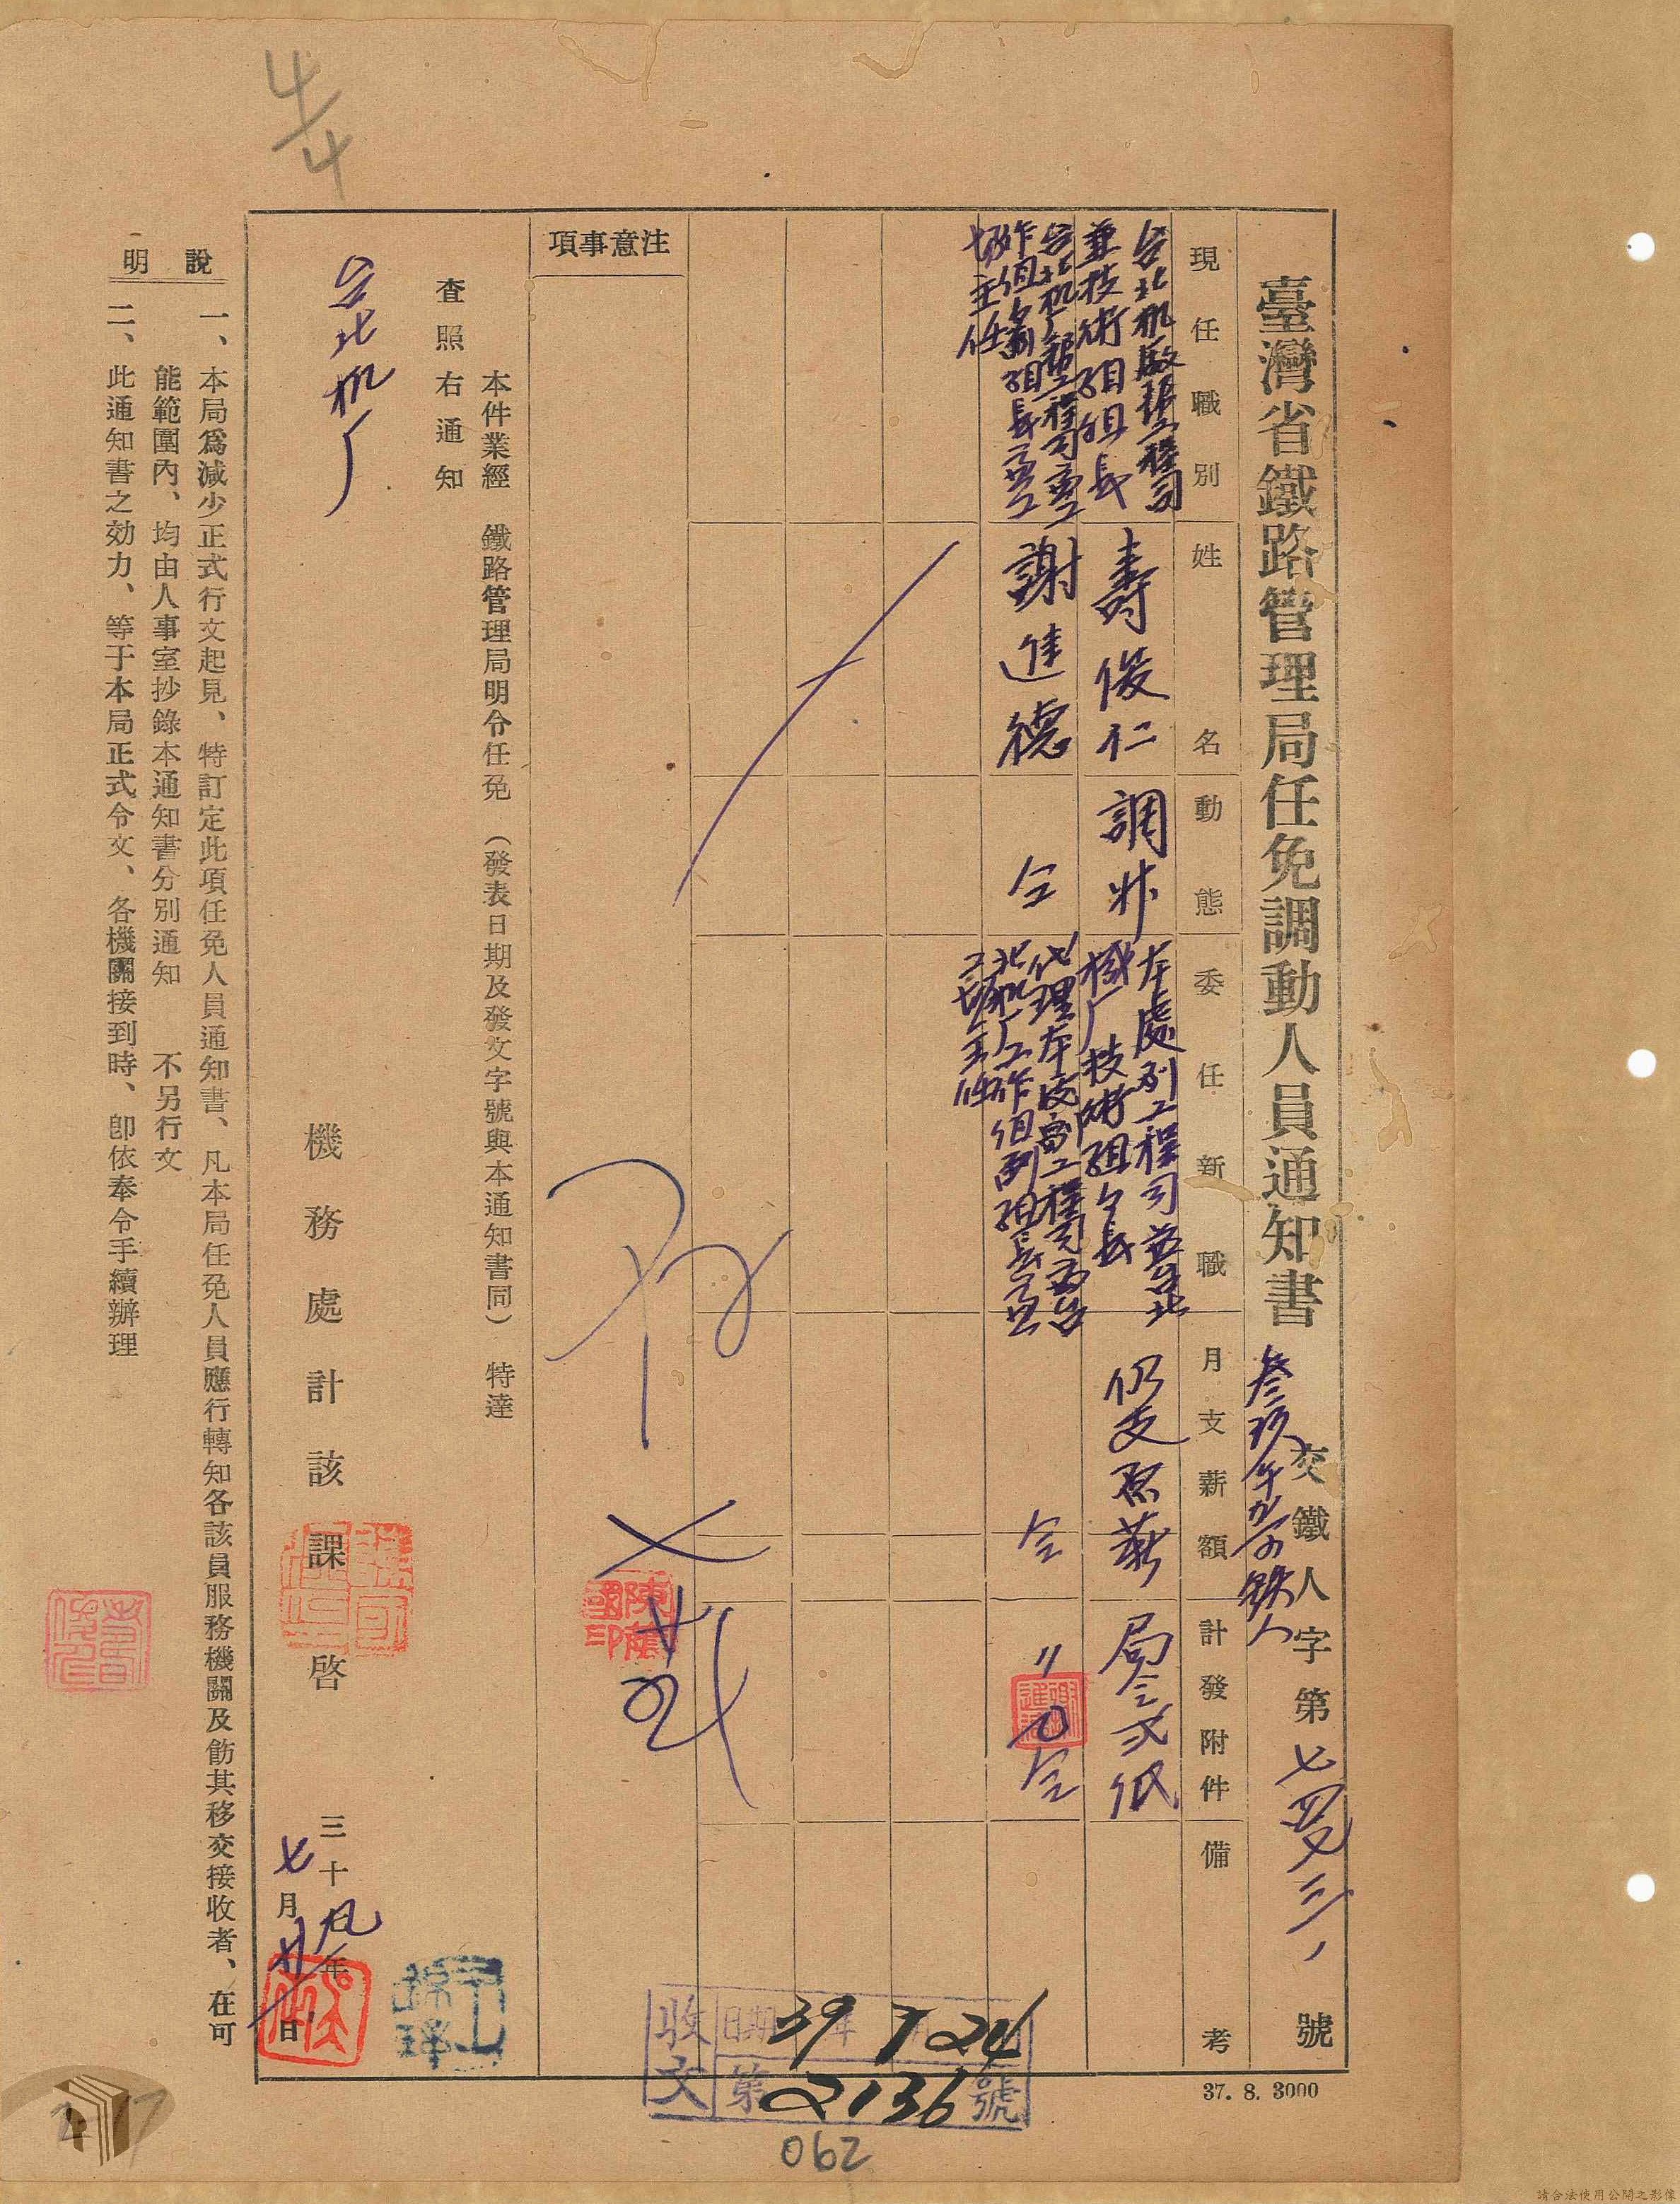 臺灣省鐵路管理局任免調動人員通知書
交鐵人字第七四又三、號
叁玖年
現任職別
姓名
動態
委任新職
月支薪額
計發附件
備考
台北机廠幫工程司
兼技術組組長
壽俊仁
調升
本處副工程司兼台北
機厂技術組組長
仍支原薪
局令弍紙
台北机厂幫工程司兼工
作組副組長兼工
場主任
謝進德
仝
代理本處副工程司兼台
北机厂工作組副組長兼
工場主任
仝
〃
仝
注意事項
本件業經 鐵路管理局明令任免 (發表日期及發文字號與本通知書同) 特達
查照右通知
台北机厂
機務處計該課啓
三十九年
七月廿一日
說明
一、本局爲減少正式行文起見、特訂定此項任免人員通知書、凡本局任免人員應行轉知各該員服務機關及飭其移交接收者、在可
能範圍內、均由人事室抄錄本通知書分別通知 不另行文
二、此通知書之効力、等于本局正式令文、各機關接到時、卽依奉令手續辦理
收文
日期 39年 7 24
第2136號
37. 8. 3000
062
4/4
請合法使用公開之影像